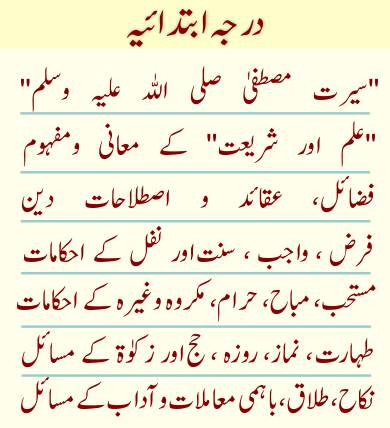 درجہ ابتدائیہ
"سیرت مصطفیٰ صلی اللہ علیہ وسلم"
"علم اور شریعت" کے معانی ومفہوم
فضائل، عقائد و اصطلاحات دین
فرض ، واجب ، سنت اور نفل کے احکامات
مستحب، مباح، حرام، مکروہ وغیرہ کے احکامات
طہارت، نماز، روزہ ، حج اور زکوٰۃ کے مسائل
نکاح، طلاق، باہمی معاملات و آداب کے مسائل